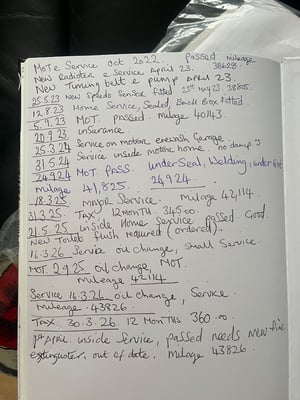 MOT e Service Oct 2022. Passed mileage
38628.
New Radiator e service April 23.
New Timing belt e pump April 23.
25.5.23 New Speedo Sensor fitted 25th May 23. 38805.
12.8.23 Home Service, Sealed, Back Box fitted
6.9.23 MOT. passed. milage 40143.
20.9.23 insurance
25.3.24 Service on motor Garage
31.5.24 Service inside motor home. no damp. :)
24.9.24 MOT PASS. underSeal, Welding, under
milage 41,825. 24.9.24.
18.3.25 mayor Service. Milage 42,114
31.3.25 TAX 12 month 345.00.
21.5.25 inside Home Service passed Good.
New Toilet flush required (ordered).
16.3.26 Service oil change, small Service.
MOT. 2.9.25 oil change, MOT.
mileage 42114
Service 16.3.26 oil change, Service.
Mileage. 43826.
TAX. 30.3.26. 12 Months 360.00
1st April. inside Service, passed needs new fire
extinguter, out of date. milage 43826.